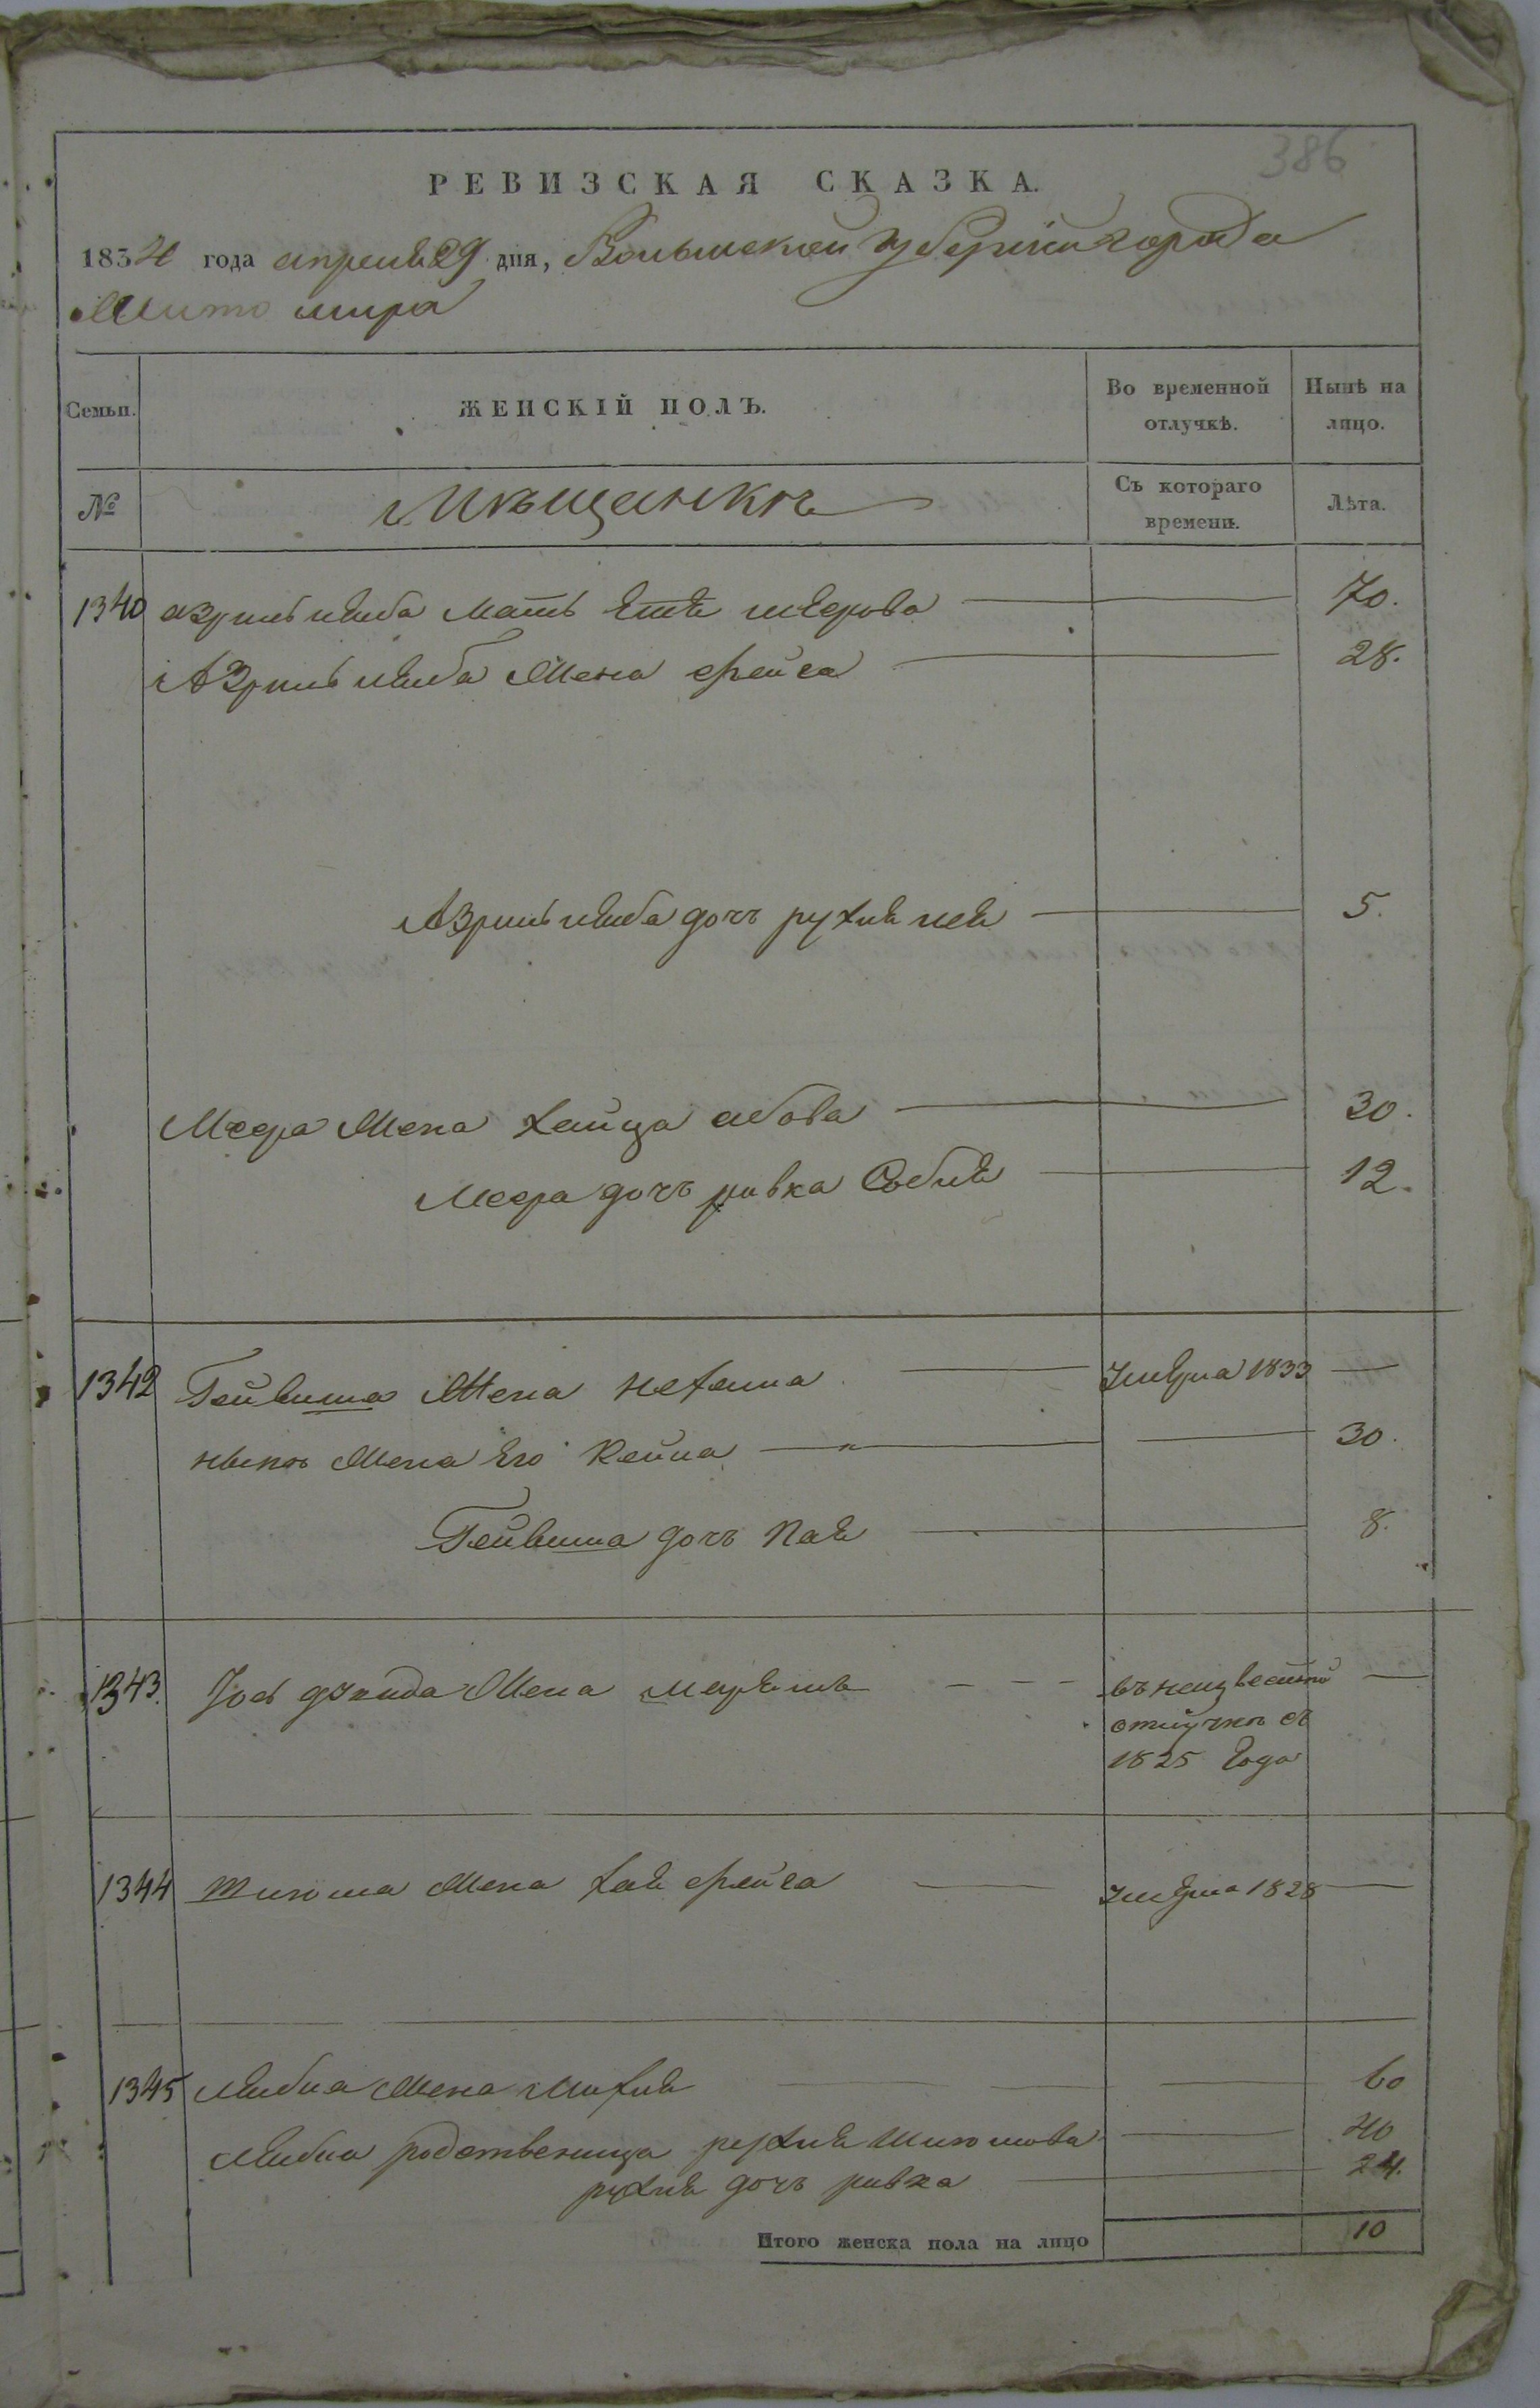 386
РЕВИЗСКАЯ СКАЗКА.
1834 года апреля 29 дня, Волынской губернии города
Житомира
Семьи. ЖЕНСКІЙ ПОЛЪ. Во временной отлучкѣ. Нынѣ на лицо.
№ Мѣщанкѣ Съ котораго времени. Лѣта.
1340 азриль лейба мать етя меерова 70.
Азриль лейба жена фейга 28.
Азриль лейба дочь рухля лея 5.
Меера жена хайца абова 30.
Меера дочь ривка 12.
1342 Гейвиша жена нехама умерла 1833
жена его Кейла 30.
Гейвиша дочь 8.
1343. Іось жена марьям въ неизвестной
отлучкѣ съ
1825 года
1344 жена хая фейга умерла 1828
1345 лейбы жена 60
Лейбы родственица рухля 40
рухли дочь ривка 24.
Итого женска пола на лицо 10